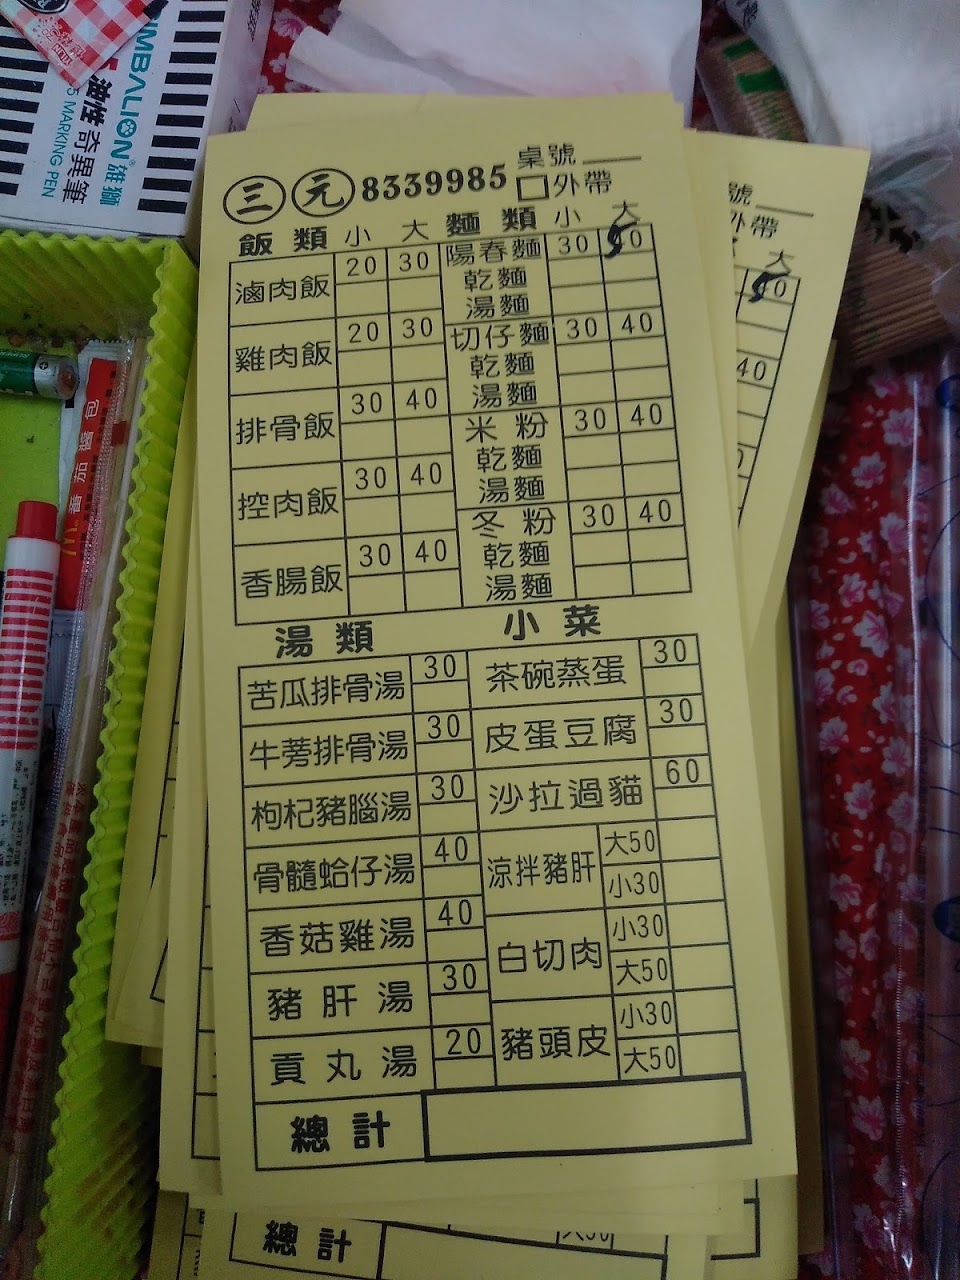 SIMBALION 雄獅
油性奇異筆
MARKING PEN
番茄醬包
三元 8339985
桌號
外帶
飯類 小 大 麵類 小 大
滷肉飯 20 30 陽春麵 30
乾麵
湯麵
雞肉飯 20 30 切仔麵 30 40
乾麵
湯麵
排骨飯 30 40 米粉 30 40
乾麵
湯麵
控肉飯 30 40 冬粉 30 40
香腸飯 30 40 乾麵
湯麵
湯類 小菜
苦瓜排骨湯 30 茶碗蒸蛋 30
牛蒡排骨湯 30 皮蛋豆腐 30
枸杞豬腦湯 30 沙拉過貓 60
骨髓蛤仔湯 40 涼拌豬肝 大50
小30
香菇雞湯 40 白切肉 小30
大50
豬肝湯 30 豬頭皮 小30
大50
貢丸湯 20
總計
號
外帶
大
40
總計
大50